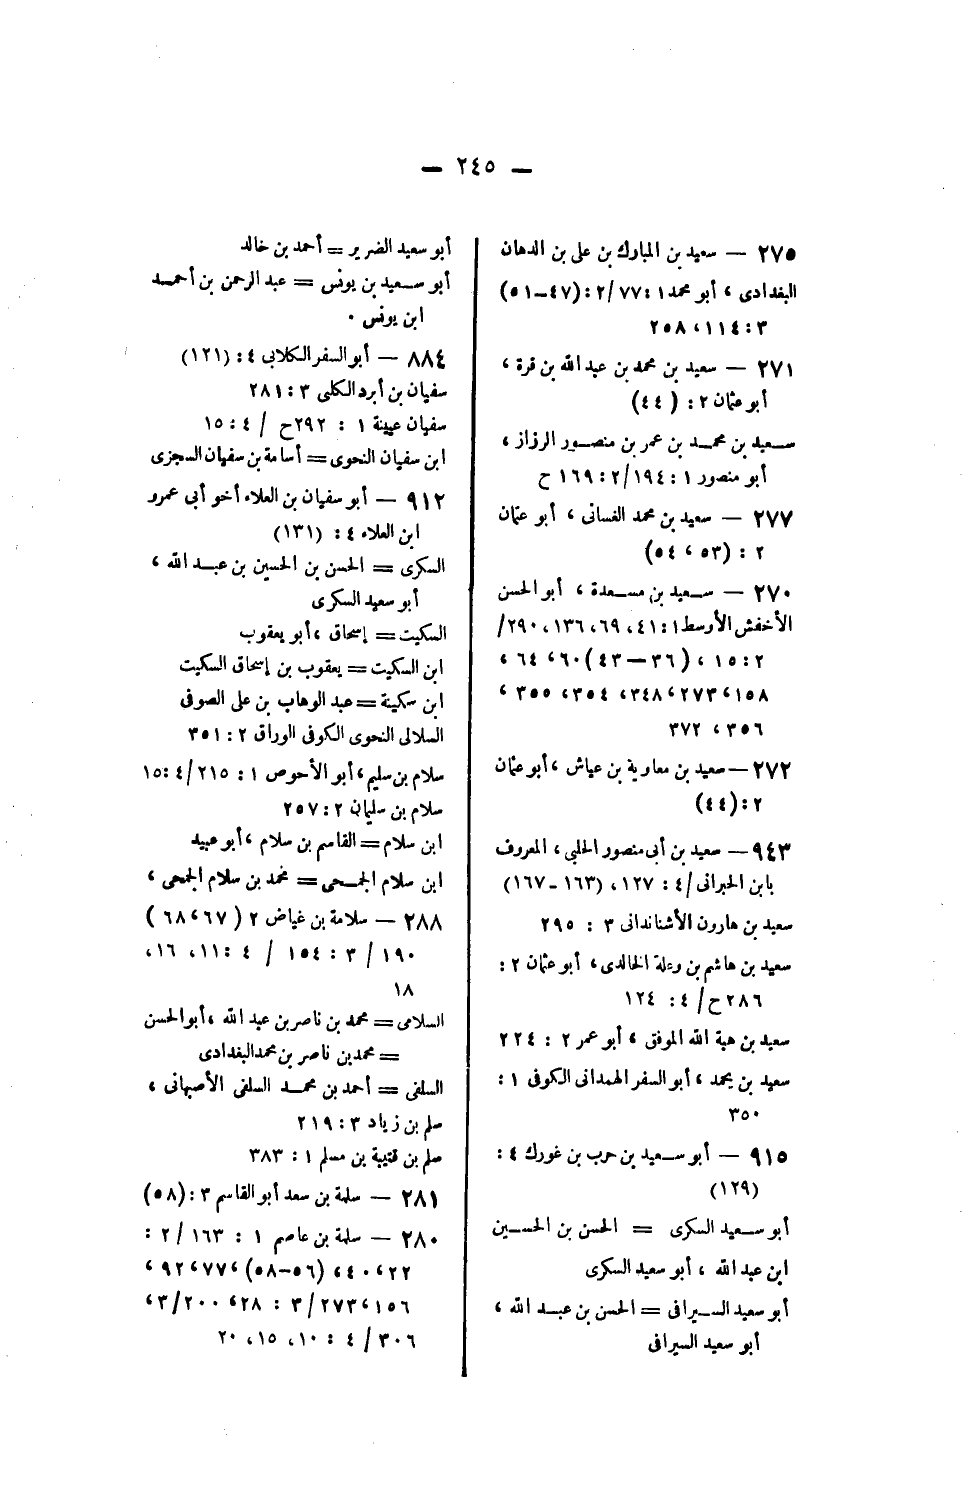 — ٢٤٥ —
٢٧٥ — سعيد بن المبارك بن على بن الدهان
البغدادى ، أبو محمد ١ : ٧٧/ ٢ : (٤٧–٥١)
٣ : ١١٤، ٢٥٨
٢٧١ — سعيد بن محمد بن عبد الله بن قرة ،
أبو عثمان ٢ : ( ٤٤)
سعيد بن محمد بن عمر بن منصور الرزاز ،
أبو منصور ١ : ١٩٤/ ٢ : ١٦٩ ح
٢٧٧ — سعيد بن محمد الغسانى ، أبو عثمان
٢ : (٥٣ ، ٥٤)
٢٧٠ — سعيد بن مسعدة ، أبو الحسن
الأخفش الأوسط ١ : ٤١، ٦٩، ١٣٦، ٢٩٠/
٢ : ١٥ ، (٣٦ — ٤٣) ٦٠، ٦٤ ،
١٥٨، ٢٧٣، ٣٤٨، ٣٥٤، ٣٥٥ ،
٣٥٦، ٣٧٢
٢٧٢ — سعيد بن معاوية بن عياش ، أبو عثمان
٢ : (٤٤)
٩٤٣ — سعيد بن أبى منصور الحلبى ، المعروف
بابن الحبرانى / ٤ : ١٢٧، (١٦٣ - ١٦٧)
سعيد بن هارون الأشناندانى ٣ : ٢٩٥
سعيد بن هاشم بن وعلة الخالدى ، أبو عثمان ٢ :
٢٨٦ ح/ ٤ : ١٢٤
سعيد بن هبة الله الموفق ، أبو عمر ٢ : ٢٢٤
سعيد بن يحمد ، أبو السفر الهمدانى الكوفى ١ :
٣٥٠
٩١٥ — أبو سعيد بن حرب بن غورك ٤ :
(١٢٩)
أبو سعيد السكرى = الحسن بن الحسين
ابن عبد الله ، أبو سعيد السكرى
أبو سعيد السيرافى = الحسن بن عبد الله ،
أبو سعيد السيرافى
أبو سعيد الضرير = أحمد بن خالد
أبو سعيد بن يونس = عبد الرحمن بن أحمد
ابن يونس .
٨٨٤ — أبو السفر الكلابى ٤ : (١٢١)
سفيان بن أبرد الكلبى ٣ : ٢٨١
سفيان عيينة ١ : ٢٩٢ح / ٤ : ١٥
ابن سفيان النحوى = أسامة بن سفيان السجزى
٩١٢ — أبو سفيان بن العلاء أخو أبى عمرو
ابن العلاء ٤ : (١٣١)
السكرى = الحسن بن الحسين بن عبد الله ،
أبو سعيد السكرى
السكيت = إسحاق ، أبو يعقوب
ابن السكيت = يعقوب بن إسحاق السكيت
ابن سكينة = عبد الوهاب بن على الصوفى
السلالى النحوى الكوفى الوراق ٢ : ٣٥١
سلام بن سليم ، أبو الأحوص ١ : ٢١٥/ ٤ : ١٥
سلام بن سليمان ٢ : ٢٥٧
ابن سلام = القاسم بن سلام ، أبو عبيد
ابن سلام الجمحى = محمد بن سلام الجمحى ،
٢٨٨ — سلامة بن غياض ٢ ( ٦٧، ٦٨ )
١٩٠ / ٣ : ١٥٤ / ٤ : ١١، ١٦،
١٨
السلامى = محمد بن ناصر بن عبد الله ، أبو الحسن
= محمد بن ناصر بن محمد البغدادى
السلفى = أحمد بن محمد السلفى الأصبهانى ،
سلم بن زياد ٣ : ٢١٩
سلم بن قتيبة بن مسلم ١ : ٣٨٣
٢٨١ — سلمة بن سعد أبو القاسم ٣ : (٥٨)
٢٨٠ — سلمة بن عاصم ١ : ١٦٣ / ٢ :
٢٢، ٤٠، (٥٦–٥٨) ٧٧، ٩٢ ،
١٥٦، ٢٧٣/ ٣ : ٢٨، ٢٠٠/ ٣،
٣٠٦/ ٤ : ١٠، ١٥، ٢٠